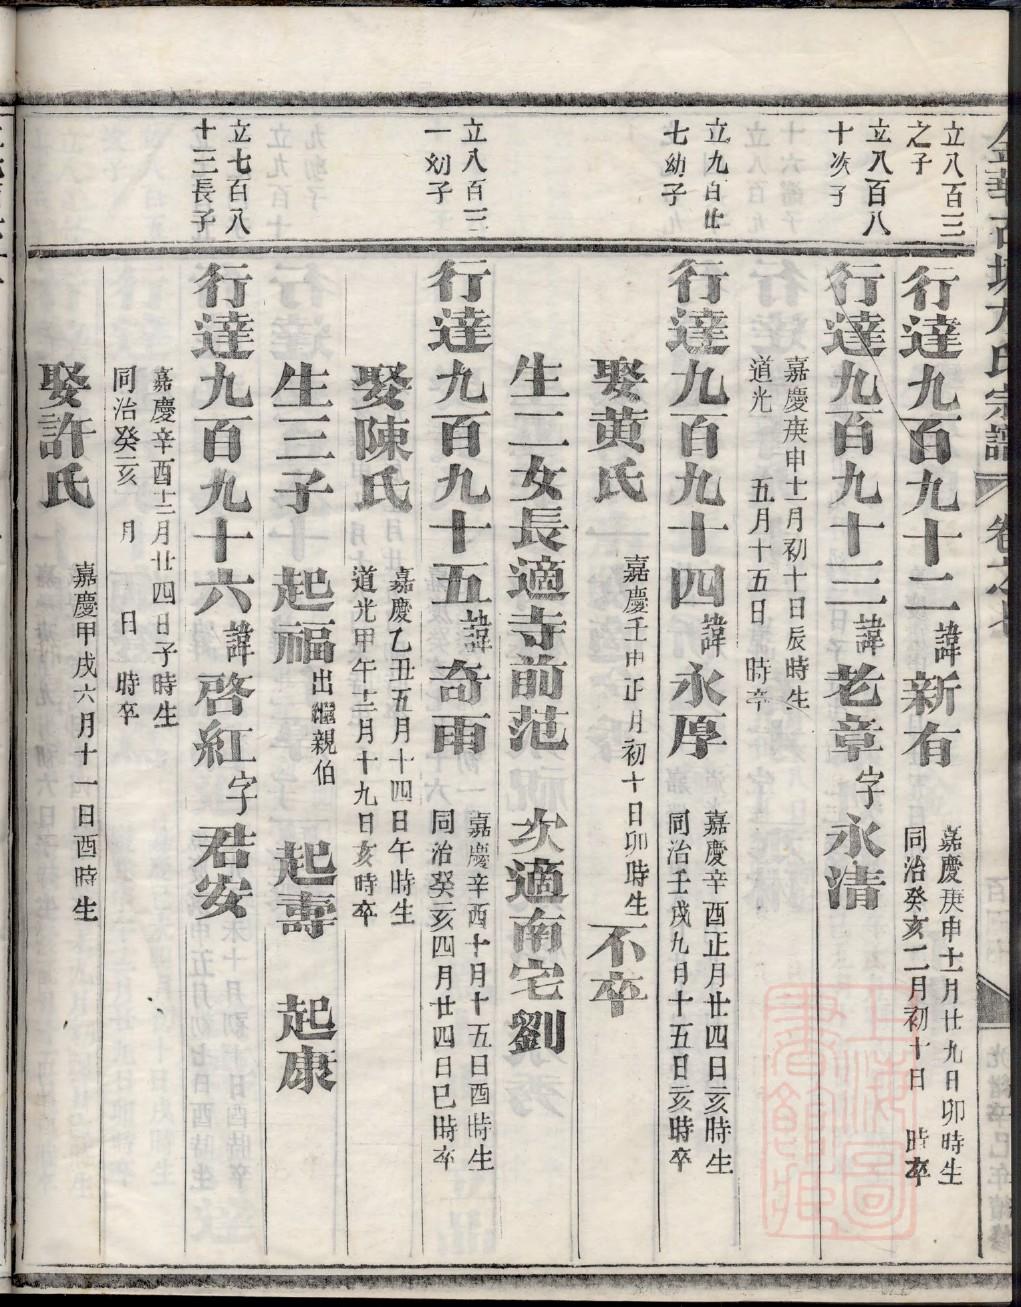 立八百三
之子
行達九百九十二諱新有
嘉慶庚申十二月廿九日卯時生
同治癸亥二月初十日 時卒
立八百八
十次子
行達九百九十三諱老章字永清
嘉慶庚申十一月初十日辰時生
道光 五月十五日 時卒
立九百廿
七幼子
行達九百九十四諱永厚
嘉慶辛酉正月廿四日亥時生
同治壬戌九月十五日亥時卒
娶黃氏
嘉慶壬申正月初十日卯時生
不卒
生二女長適寺前范 次適南宅劉
立八百三
一幼子
行達九百九十五諱奇雨
嘉慶辛酉十月十五日酉時生
同治癸亥四月廿四日巳時卒
娶陳氏
嘉慶乙丑五月十四日午時生
道光甲午十二月十九日亥時卒
生三子 起福出繼親伯 起壽 起康
立七百八
十三長子
行達九百九十六諱啓紅字君安
嘉慶辛酉十二月廿四日子時生
同治癸亥 月 日 時卒
娶許氏
嘉慶甲戌六月十一日酉時生